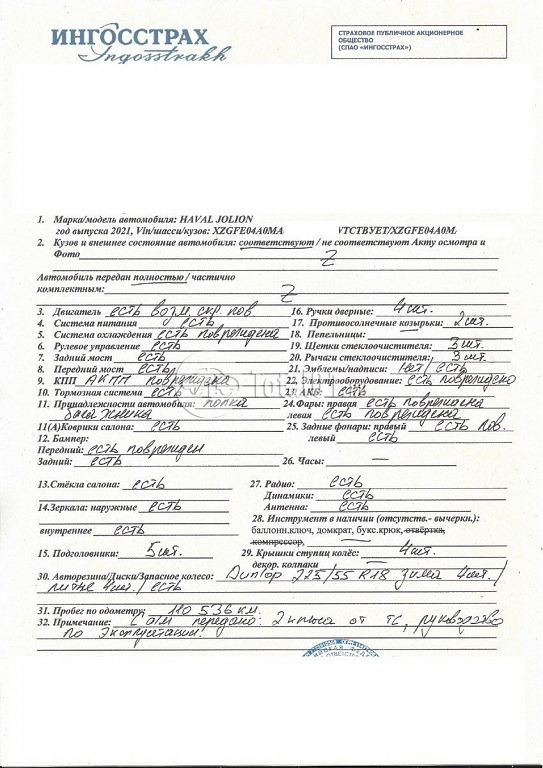 ИНГОССТРАХ
Ingosstrakh
СТРАХОВОЕ ПУБЛИЧНОЕ АКЦИОНЕРНОЕ
ОБЩЕСТВО
(СПАО «ИНГОССТРАХ»)
1. Марка/модель автомобиля: HAVAL JOLION
год выпуска 2021, Vin/шасси/кузов: XZGFE04A0MA VTCTBYET/XZGFE04A0M
2. Кузов и внешнее состояние автомобиля: соответствуют / не соответствуют Акту осмотра и
Фото Z
Автомобиль передан полностью / частично
комплектным: Z
3. Двигатель есть возм. скр. пов
4. Система питания есть
5. Система охлаждения есть повреждена
6. Рулевое управление есть
7. Задний мост есть
8. Передний мост есть
9. КПП АКПП повреждена
10. Тормозная система есть
11. Принадлежности автомобиля: полка
багажника
11(А)Коврики салона: есть
12. Бампер:
Передний: есть поврежден
Задний: есть
13.Стёкла салона: есть
14.Зеркала: наружные есть
внутреннее есть
15. Подголовники: 5 шт.
16. Ручки дверные: 4 шт.
17. Противосолнечные козырьки: 2 шт.
18. Пепельницы: —
19. Щетки стеклоочистителя: 3 шт.
20. Рычаги стеклоочистителя: 3 шт
21. Эмблемы/надписи: нет / есть
22. Электрооборудование: есть повреждено
23. АКБ: есть
24.Фары: правая есть повреждена
левая есть повреждена
25. Задние фонари: правый есть пов.
левый есть
26. Часы: —
27. Радио: есть
Динамики: есть
Антенна: есть
28. Инструмент в наличии (отсутств.- вычеркн.):
баллонн.ключ, домкрат, букс.крюк, отвёртка,
компрессор,
29. Крышки ступиц колёс: 4 шт.
декор. колпаки
30. Авторезина/Диски/Запасное колесо: Dunlop 225/55 R18 зима 4шт. /
литые 4 шт. / есть
31. Пробег по одометру: 110 536 км.
32. Примечание: С а/м передано: 2 ключа от ТС, руководство
по эксплуатации.